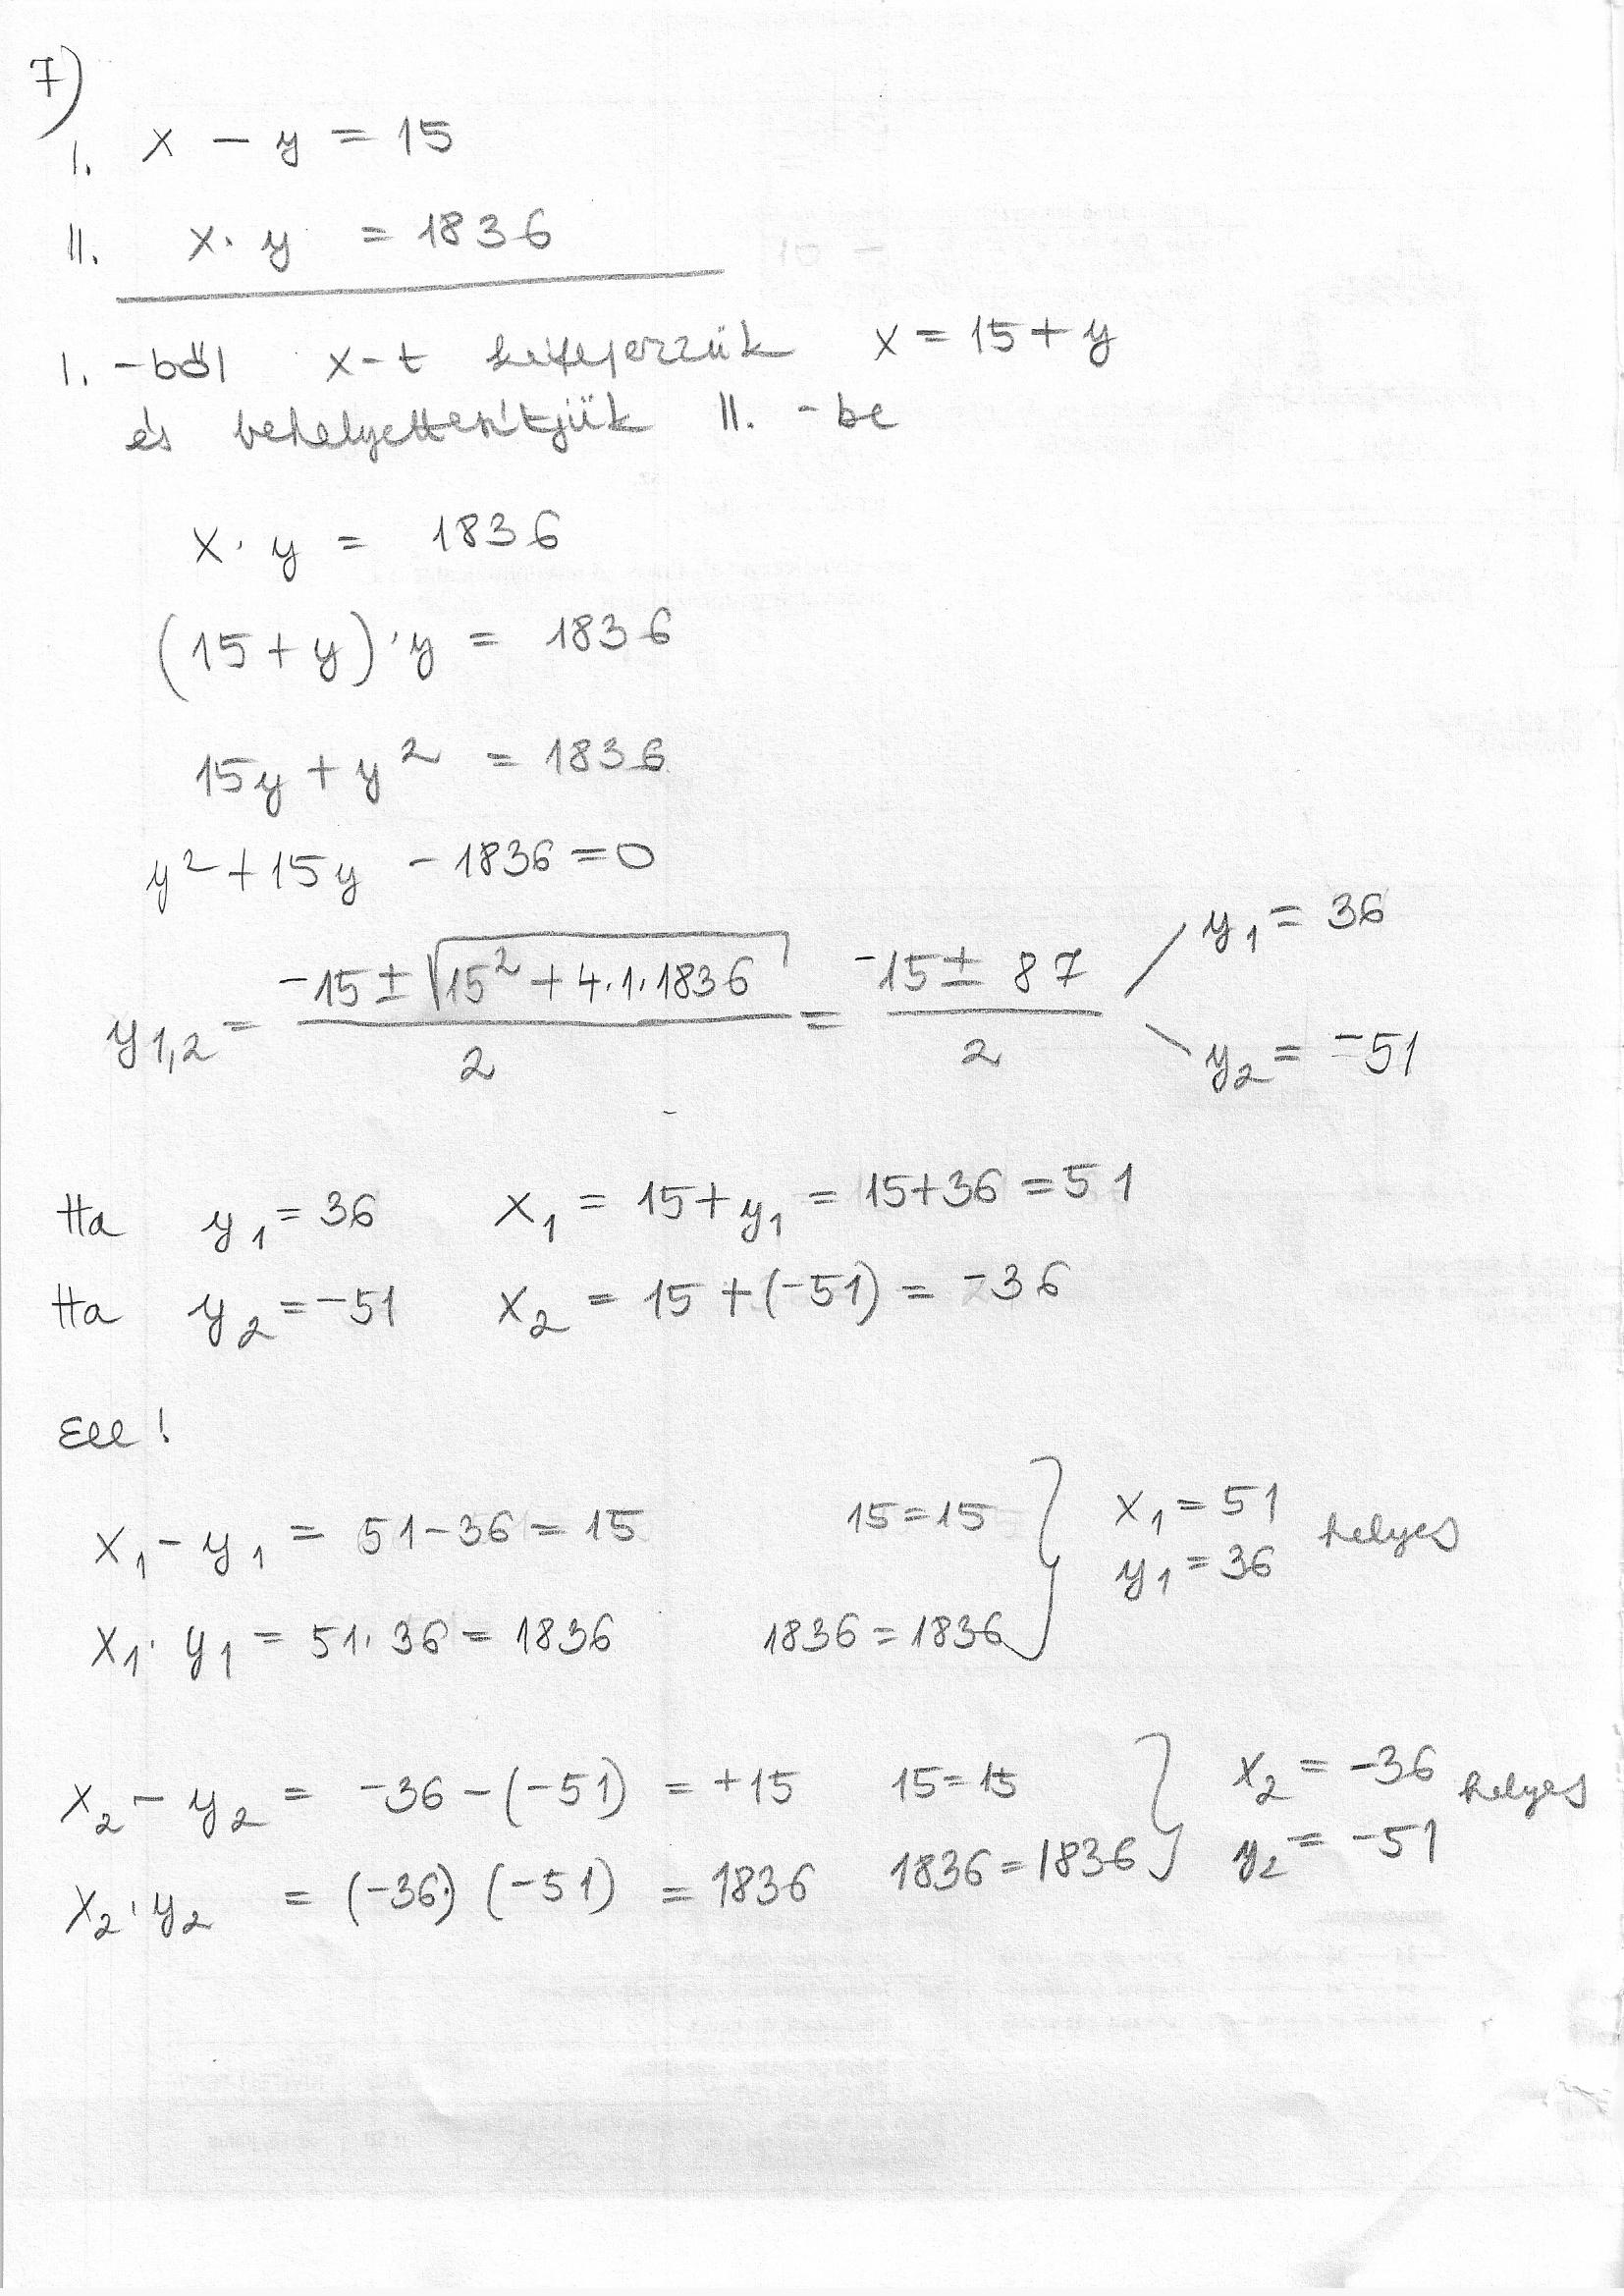 7)
I. x - y = 15
II. x · y = 1836
I. -ből x-t kifejezzük x = 15 + y
és behelyettesítjük II. -be
x · y = 1836
(15 + y) · y = 1836
15y + y² = 1836
y² + 15y - 1836 = 0
y1,2 = (-15 ± √(15² + 4·1·1836)) / 2 = (-15 ± 87) / 2
y₁ = 36
y₂ = -51
Ha y₁ = 36 x₁ = 15 + y₁ = 15+36 = 51
Ha y₂ = -51 x₂ = 15 + (-51) = -36
Ell!
x₁ - y₁ = 51-36 = 15 15 = 15 } x₁ = 51 helyes
y₁ = 36
x₁ · y₁ = 51 · 36 = 1836 1836 = 1836
x₂ - y₂ = -36 - (-51) = +15 15 = 15 } x₂ = -36 helyes
y₂ = -51
x₂ · y₂ = (-36) · (-51) = 1836 1836 = 1836